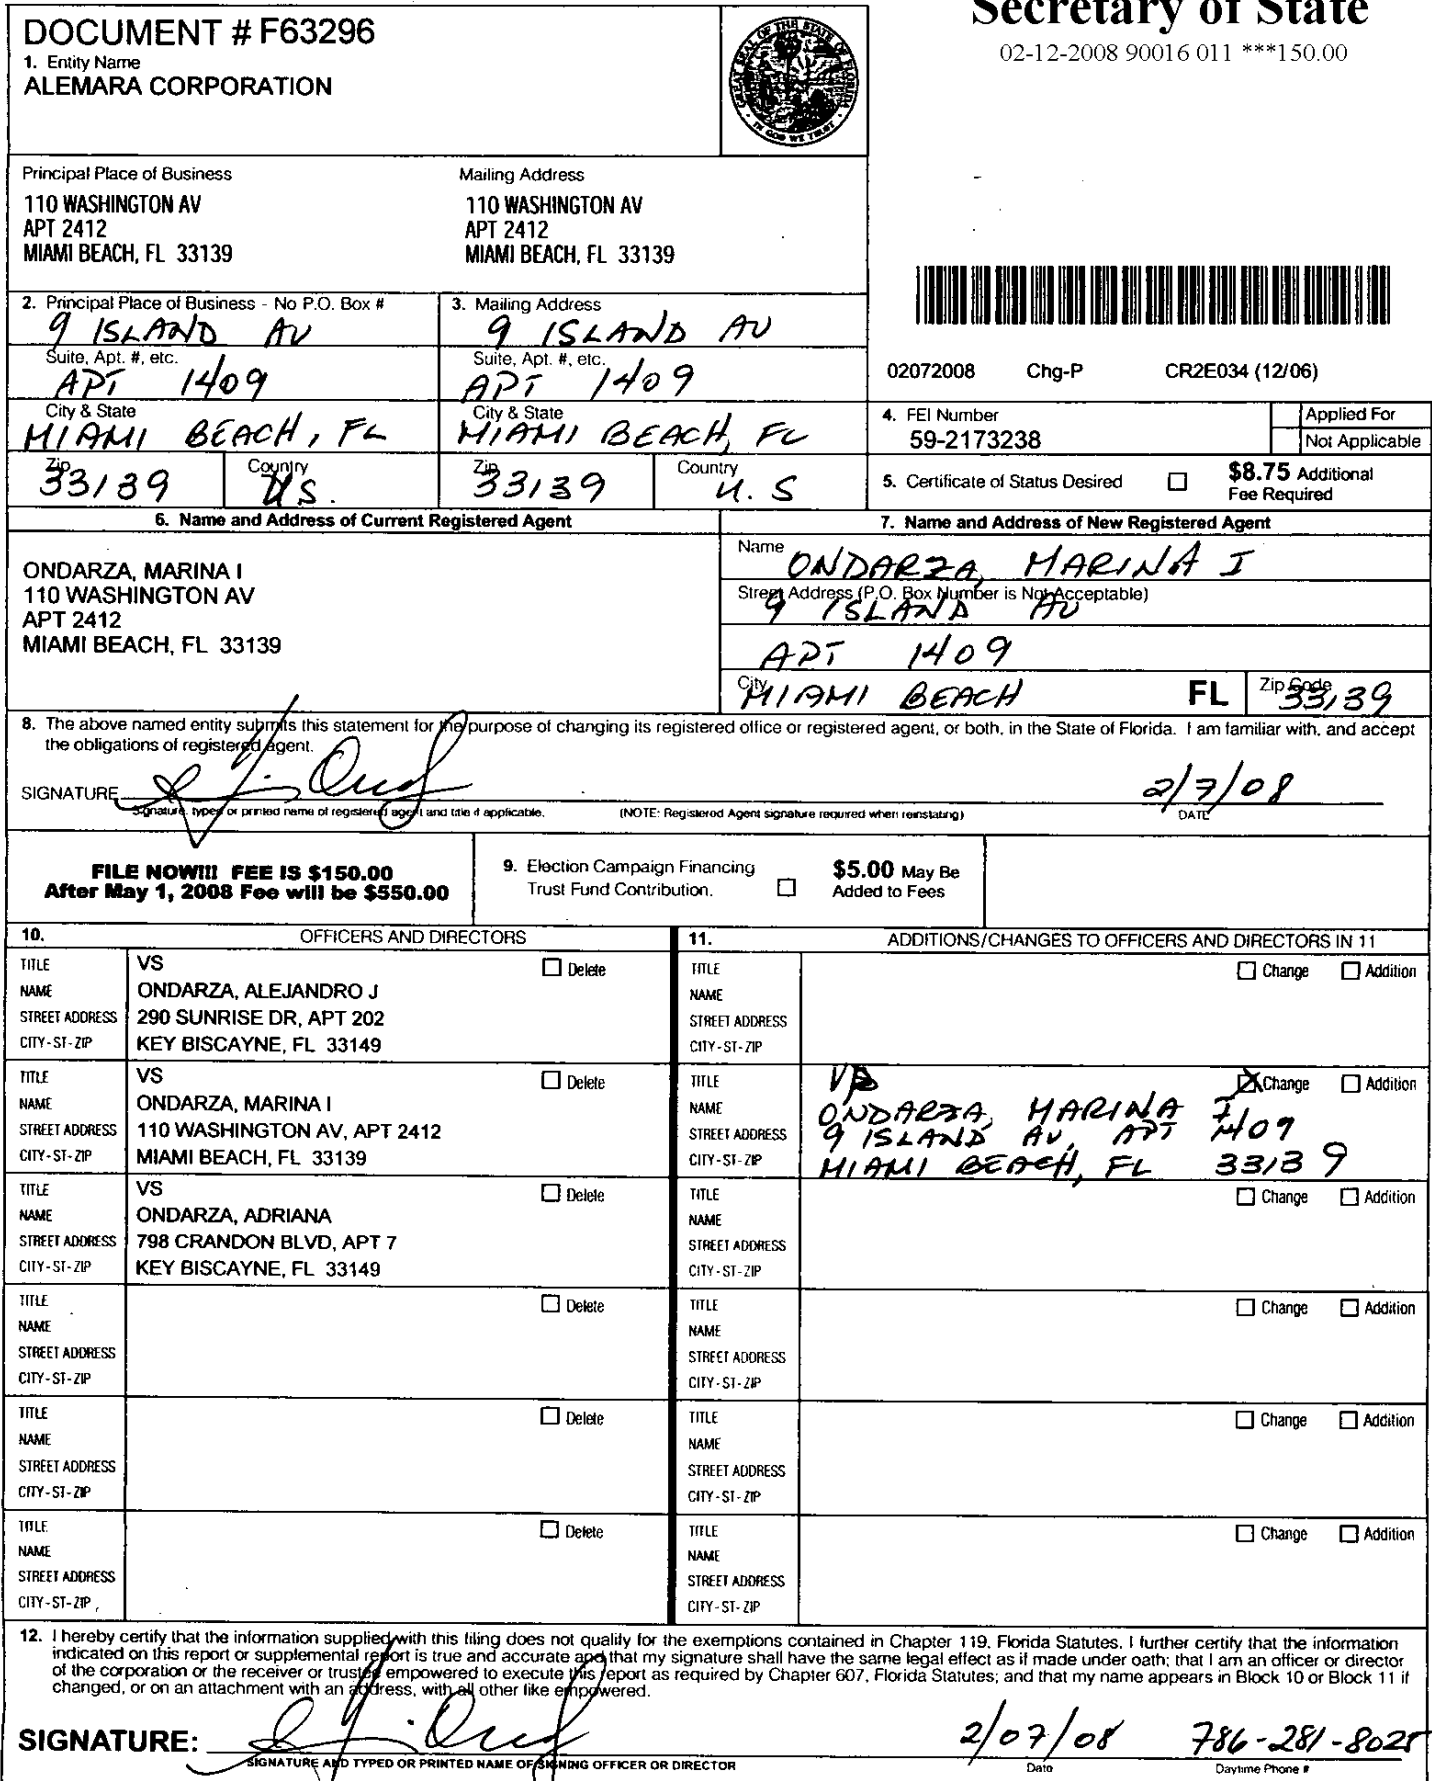 Secretary of State
02-12-2008 90016 011 ***150.00
DOCUMENT # F63296
1. Entity Name
ALEMARA CORPORATION
GREAT SEAL OF THE STATE OF FLORIDA
IN GOD WE TRUST
Principal Place of Business
110 WASHINGTON AV
APT 2412
MIAMI BEACH, FL 33139
Mailing Address
110 WASHINGTON AV
APT 2412
MIAMI BEACH, FL 33139
2. Principal Place of Business - No P.O. Box #
9 ISLAND AV
Suite, Apt. #, etc.
APT 1409
City & State
MIAMI BEACH, FL
Zip
33139
Country
U.S.
3. Mailing Address
9 ISLAND AV
Suite, Apt. #, etc.
APT 1409
City & State
MIAMI BEACH, FL
Zip
33139
Country
U.S
02072008 Chg-P CR2E034 (12/06)
4. FEI Number
59-2173238
Applied For
Not Applicable
5. Certificate of Status Desired
$8.75 Additional
Fee Required
6. Name and Address of Current Registered Agent
ONDARZA, MARINA I
110 WASHINGTON AV
APT 2412
MIAMI BEACH, FL 33139
7. Name and Address of New Registered Agent
Name
ONDARZA, MARINA I
Street Address (P.O. Box Number is Not Acceptable)
9 ISLAND AV
APT 1409
City
MIAMI BEACH
FL
Zip Code
33139
8. The above named entity submits this statement for the purpose of changing its registered office or registered agent, or both, in the State of Florida. I am familiar with, and accept
the obligations of registered agent.
SIGNATURE
2/7/08
Signature, typed or printed name of registered agent and title if applicable.
(NOTE: Registered Agent signature required when reinstating)
DATE
FILE NOW!!! FEE IS $150.00
After May 1, 2008 Fee will be $550.00
9. Election Campaign Financing
Trust Fund Contribution.
$5.00 May Be
Added to Fees
10. OFFICERS AND DIRECTORS
TITLE VS Delete
NAME ONDARZA, ALEJANDRO J
STREET ADDRESS 290 SUNRISE DR, APT 202
CITY-ST-ZIP KEY BISCAYNE, FL 33149
TITLE VS Delete
NAME ONDARZA, MARINA I
STREET ADDRESS 110 WASHINGTON AV, APT 2412
CITY-ST-ZIP MIAMI BEACH, FL 33139
TITLE VS Delete
NAME ONDARZA, ADRIANA
STREET ADDRESS 798 CRANDON BLVD, APT 7
CITY-ST-ZIP KEY BISCAYNE, FL 33149
TITLE Delete
NAME
STREET ADDRESS
CITY-ST-ZIP
TITLE Delete
NAME
STREET ADDRESS
CITY-ST-ZIP
TITLE Delete
NAME
STREET ADDRESS
CITY-ST-ZIP
11. ADDITIONS/CHANGES TO OFFICERS AND DIRECTORS IN 11
TITLE Change Addition
NAME
STREET ADDRESS
CITY-ST-ZIP
TITLE Change Addition
NAME ONDARZA, MARINA I
STREET ADDRESS 9 ISLAND AV, APT 1409
CITY-ST-ZIP MIAMI BEACH, FL 33139
TITLE Change Addition
NAME
STREET ADDRESS
CITY-ST-ZIP
TITLE Change Addition
NAME
STREET ADDRESS
CITY-ST-ZIP
TITLE Change Addition
NAME
STREET ADDRESS
CITY-ST-ZIP
TITLE Change Addition
NAME
STREET ADDRESS
CITY-ST-ZIP
12. I hereby certify that the information supplied with this filing does not qualify for the exemptions contained in Chapter 119, Florida Statutes. I further certify that the information
indicated on this report or supplemental report is true and accurate and that my signature shall have the same legal effect as if made under oath; that I am an officer or director
of the corporation or the receiver or trustee empowered to execute this report as required by Chapter 607, Florida Statutes; and that my name appears in Block 10 or Block 11 if
changed, or on an attachment with an address, with all other like empowered.
SIGNATURE:
2/07/08 786-281-8025
SIGNATURE AND TYPED OR PRINTED NAME OF SIGNING OFFICER OR DIRECTOR
Date
Daytime Phone #